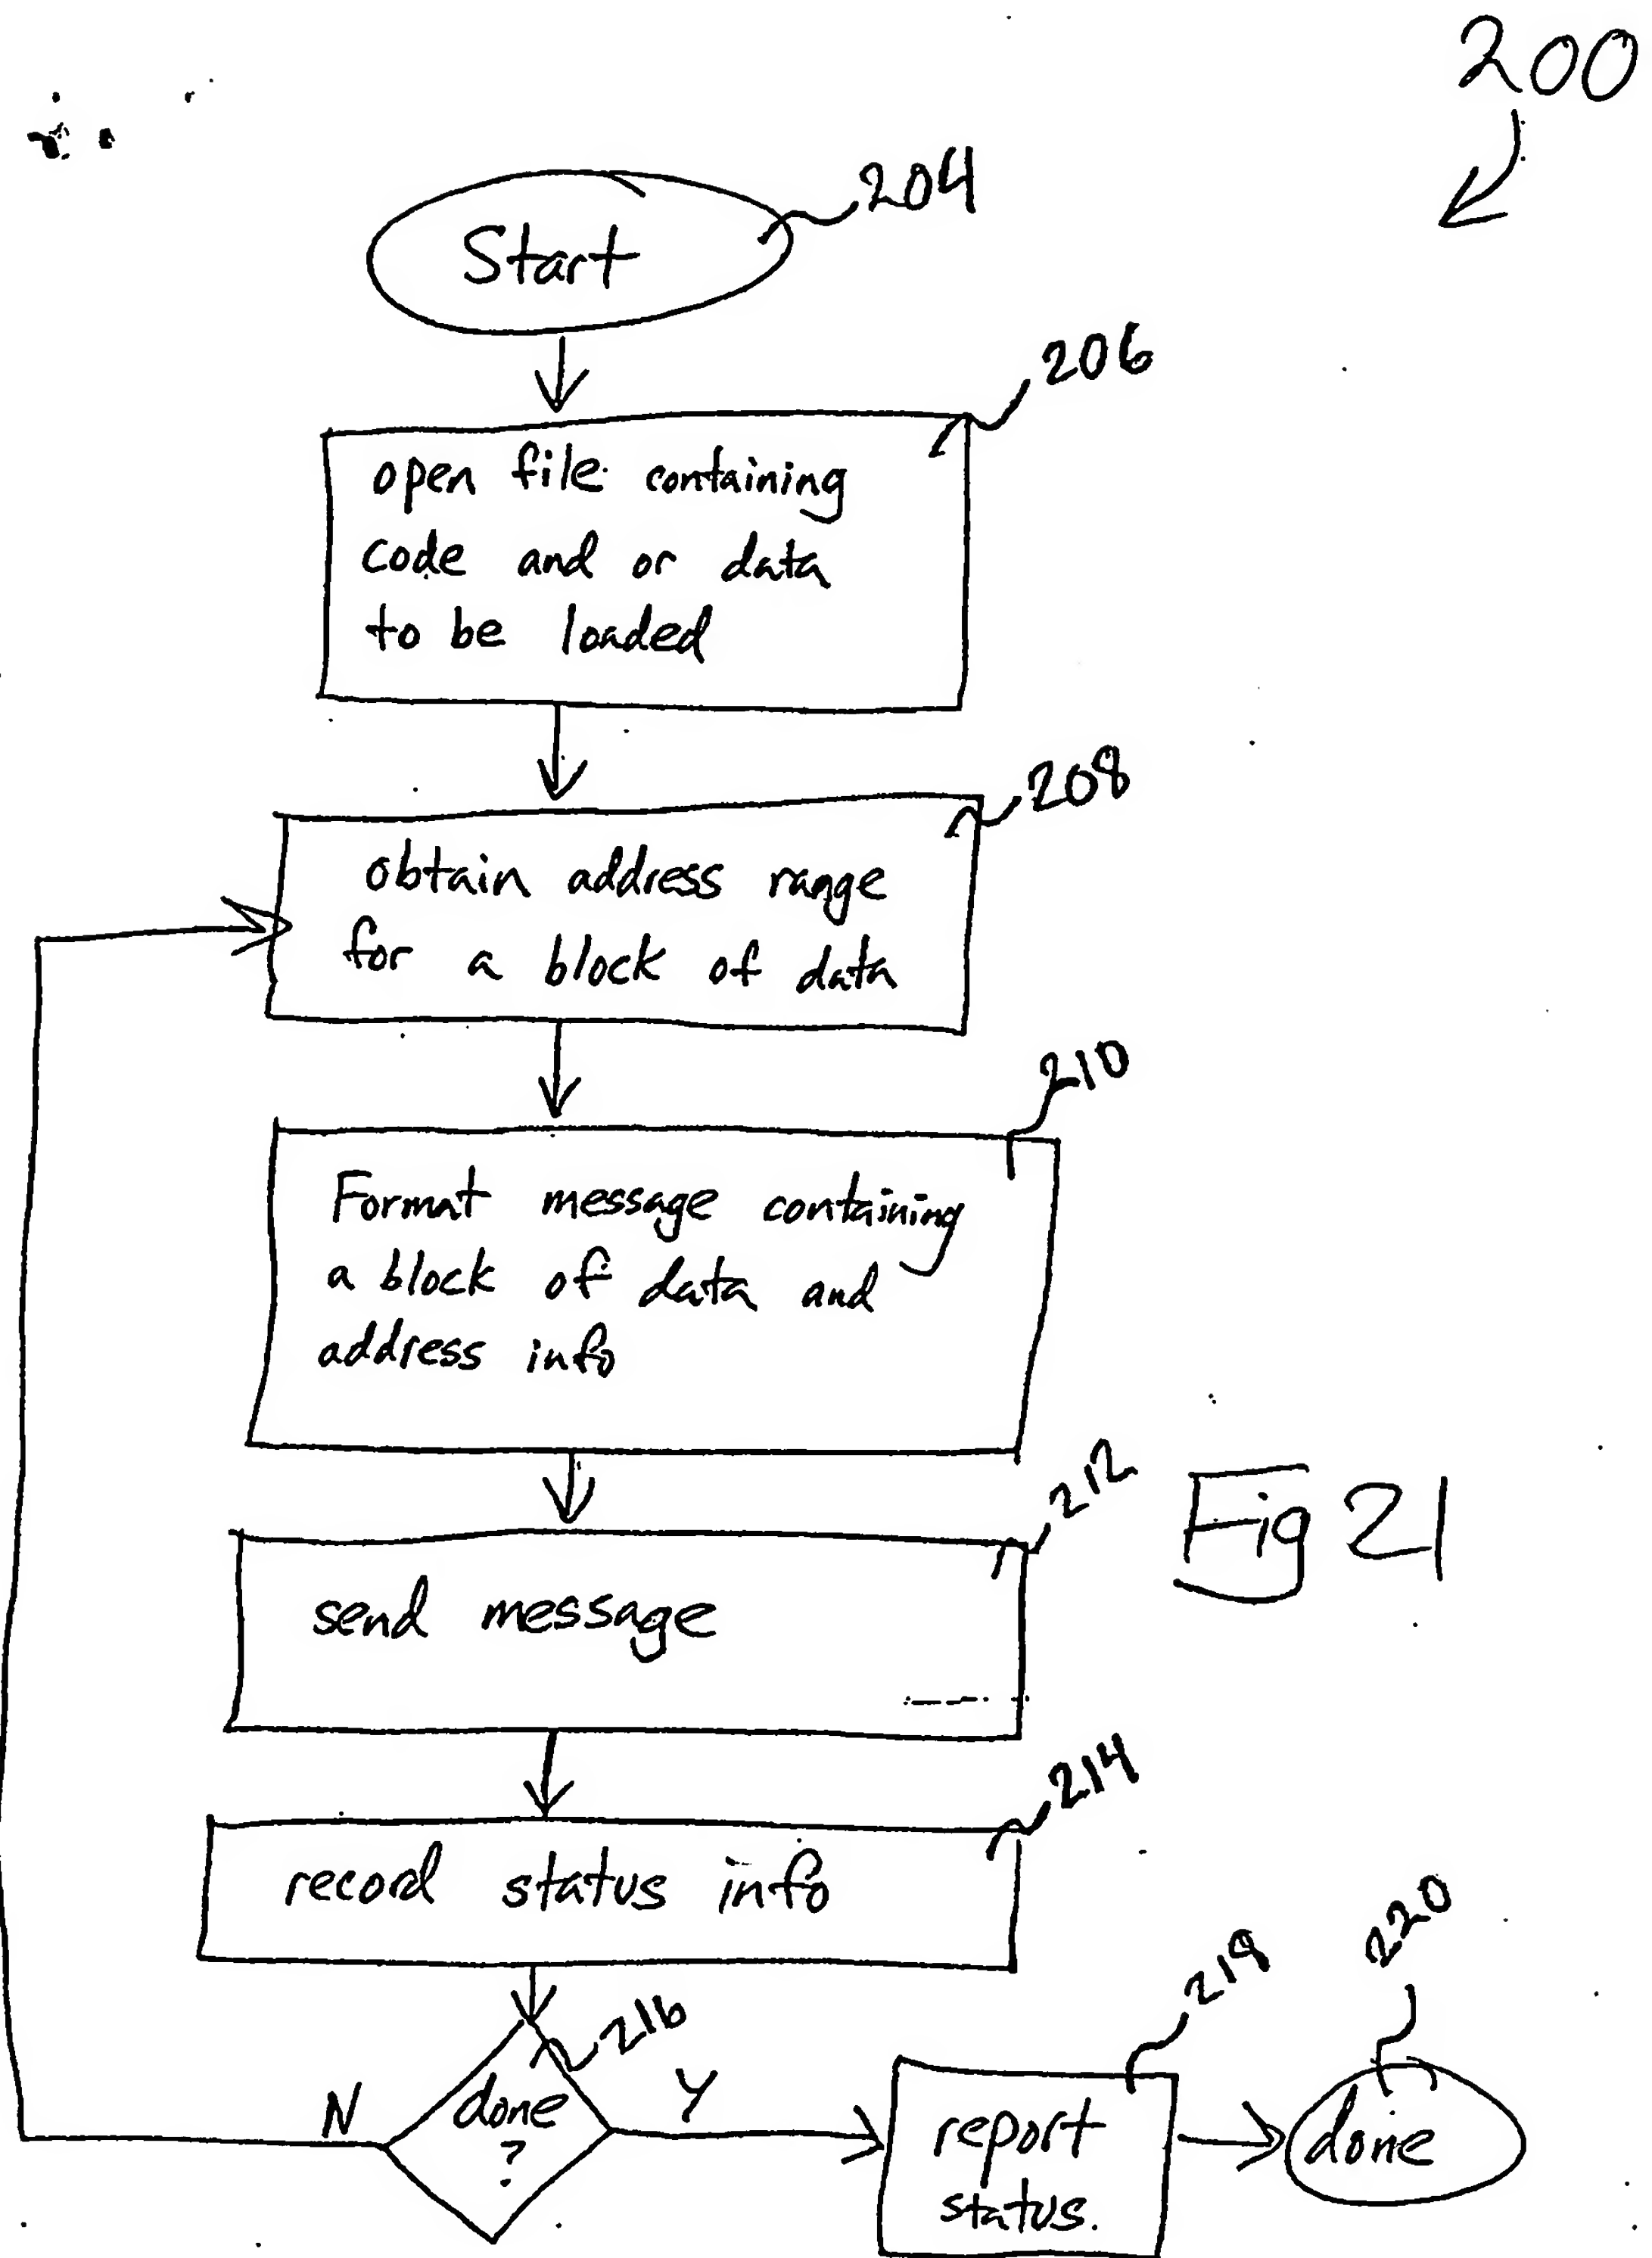 200
204
Start
206
open file containing
code and or data
to be loaded
208
obtain address range
for a block of data
210
Format message containing
a block of data and
address info
212
send message
Fig 21
214
record status info
216
done
?
N
Y
218
report
status.
220
done